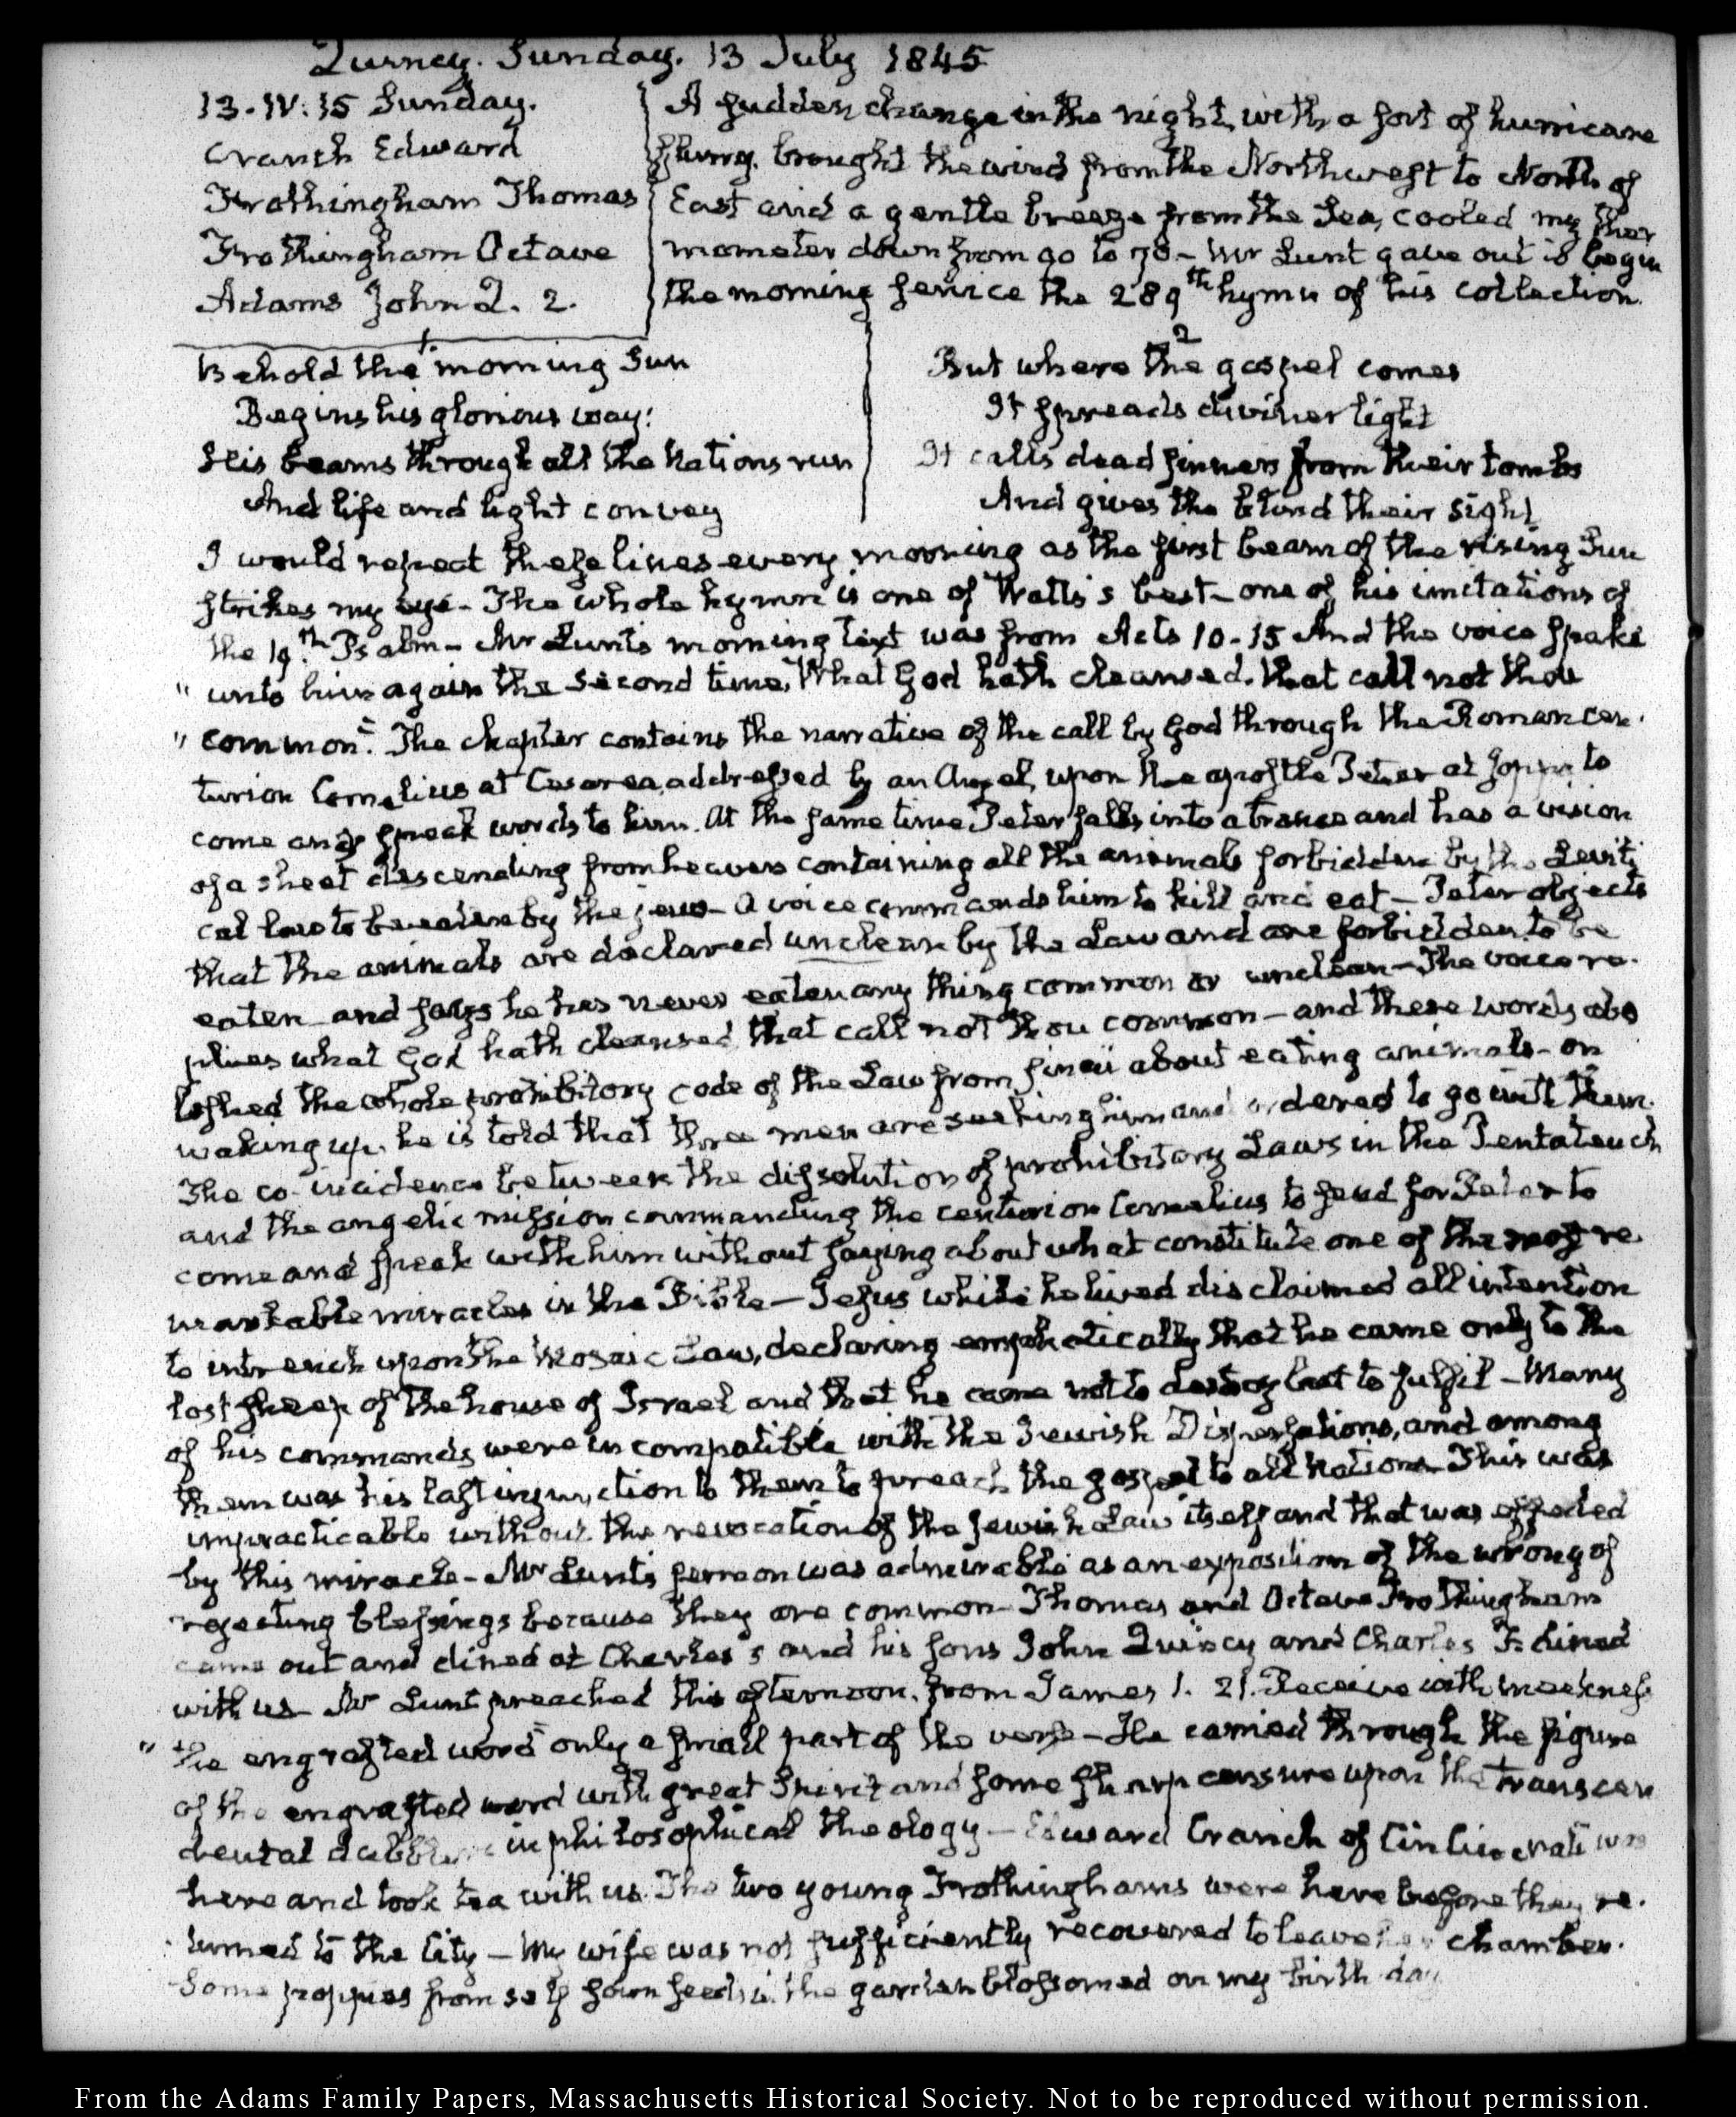 Quincy. Sunday. 13 July 1845
13. IV: 15 Sunday.
Cranch Edward
Frothingham Thomas
Frothingham Octave
Adams John Q. 2.
A sudden change in the night, with a sort of hurricane
brought the wind from the Northwest to North of
East and a gentle breeze from the Sea, cooled my ther
mometer down from 90 to 78 - Mr Lunt gave out to begin
the morning service the 289th hymn of his collection.
1.
Behold the morning Sun
Begins his glorious way:
His beams through all the Nations run
And life and light convey
2
But where the gospel comes
It spreads diviner light
It calls dead sinners from their tombs
And gives the blind their sight
I would repeat these lines every morning as the first beam of the rising Sun
strikes my eye - The whole hymn is one of Watts's best - one of his imitations of
the 19th Psalm - Mr Lunt's morning text was from Acts 10-15 And the voice spake
" unto him again the second time, What God hath cleansed, that call not thou
" common". The chapter contains the narrative of the call by God through the Roman Cen-
turion Cornelius at Cesarea, addressed by an Angel, upon the apostle Peter at Joppa to
come and speak words to him. At the same time Peter falls into a trance and has a vision
of a sheet descending from heaven containing all the animals forbidden by the Leviti
cal law to be eaten by the jews - A voice commands him to kill and eat - Peter objects
that the animals are declared unclean by the Law and are forbidden to be
eaten - and says he has never eaten any thing common or unclean - The voice re-
plies what God hath cleansed that call not thou common - and these words abo
lished the whole prohibitory code of the Law from Sinai about eating animals - on
waking up, he is told that three men are seeking him and ordered to go with them.
The co-incidence between the dissolution of prohibitory Laws in the Pentateuch
and the angelic mission commanding the centurion Cornelius to send for Peter to
come and speak with him without saying about what constitute one of the most re-
markable miracles in the Bible - Jesus while he lived disclaimed all intention
to intrench upon the Mosaic Law, declaring emphatically that he came only to the
lost sheep of the house of Israel and that he came not to destroy but to fulfil - Many
of his commands were incompatible with the Jewish Dispensations, and among
them was his last injunction to them to preach the gospel to all Nations - This was
impracticable without the revocation of the Jewish Law itself and that was effected
by this miracle - Mr Lunt's sermon was admirable as an exposition of the wrong of
rejecting blessings because they are common - Thomas and Octave Frothingham
came out and dined at Charles's and his sons John Quincy and Charles F. dined
with us - Mr Lunt preached this afternoon, from James 1. 21. Receive with meekness
" the engrafted word" only a small part of the verse - He carried through the figure
of the engrafted word with great Spirit and some sharp censure upon the transcen
dental in philosophical theology - Edward Cranch of Cincinnati was
here and took tea with us. The two young Frothinghams were here before they re-
turned to the City - My wife was not sufficiently recovered to leave her chamber.
Some poppies from self sown seeds in the garden blossomed on my birth day
From the Adams Family Papers, Massachusetts Historical Society. Not to be reproduced without permission.